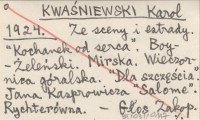 KWAŚNIEWSKI Karol
1924. Ze sceny i estrady.
"Kochanek od serca". Boy-
-Żeleński. Mirska. Wieczor-
nica góralska. "Dla szczęścia".
Jana Kasprowicza "Salome".
Rychterówna. - Głos Zakop.